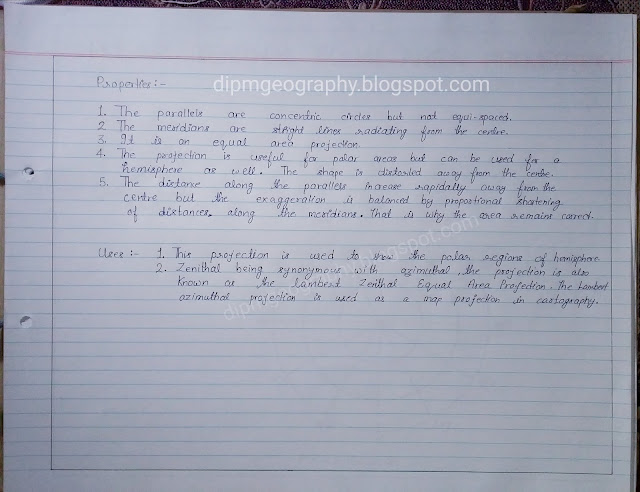 dipmgeography.blogspot.com
Properties:-
1. The parallels are concentric circles but not equi-spaced.
2 The meridians are stright lines radiating from the centre.
3. It is an equal area projection.
4. The projection is useful for polar areas but can be used for a
hemisphere as well. The shape is distorted away from the centre.
5. The distance along the parallels increase rapidally away from the
centre but the exaggeration is balanced by proportional shortening
of distances, along the meridians. That is why the area remains correct.
Uses :- 1. This projection is used to show the polar regions of hemisphere
2. Zenithal being synonymous with azimuthal, the projection is also
Known as the Lambert Zenithal Equal Area Projection. The Lambert
azimuthal projection is used as a map projection in cartography.
dipmgeography.blogspot.com